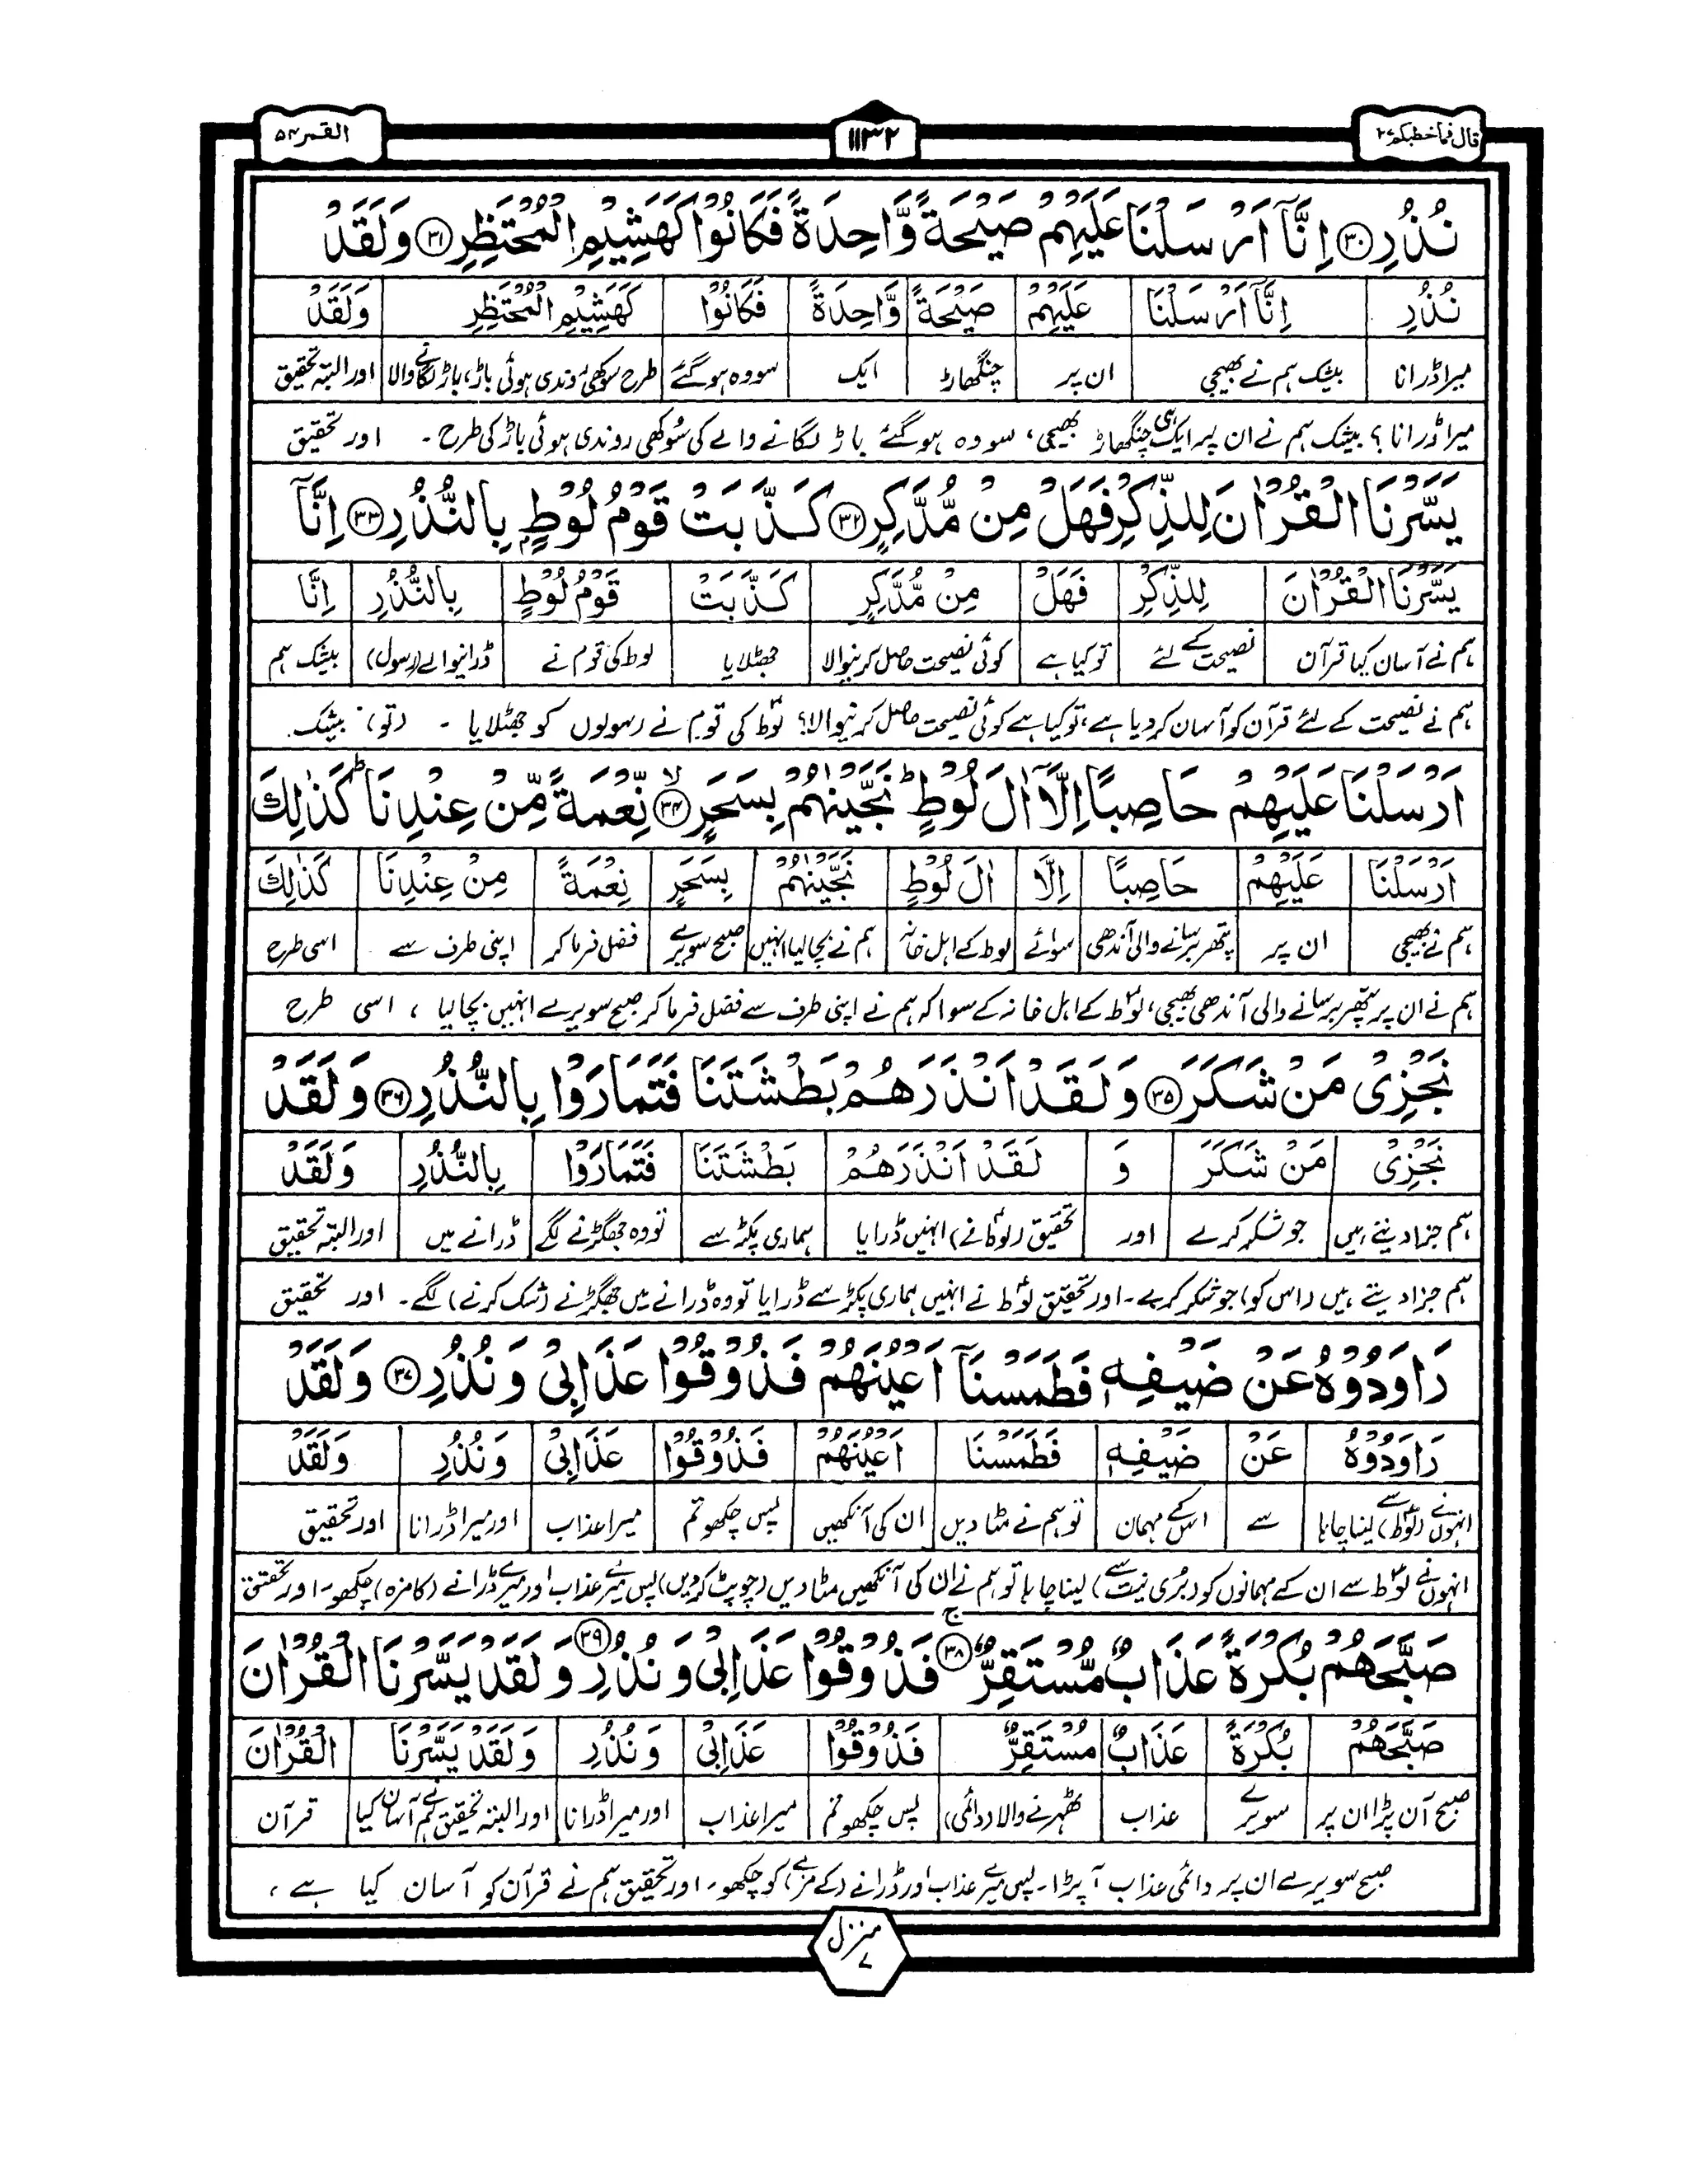 قال فما خطبکم ۲۷
۱۱۳۲
القمر ۵۴
نُذُرِ ۝۳۰ اِنَّاۤ اَرْسَلْنَا عَلَیْهِمْ صَیْحَةً وَّاحِدَةً فَكَانُوْا كَهَشِیْمِ الْمُحْتَظِرِ ۝۳۱ وَ لَقَدْ
نُذُرِ اِنَّاۤ اَرْسَلْنَا عَلَیْهِمْ صَیْحَةً وَّاحِدَةً فَكَانُوْا كَهَشِیْمِ الْمُحْتَظِرِ وَلَقَدْ
میرا ڈرانا بیشک ہم نے بھیجی ان پر چنگھاڑ ایک سو وہ ہوگئے طرح سوکھی روندی ہوئی باڑ، باڑ لگانے والا اور البتہ تحقیق
میرا ڈرانا ؟ بیشک ہم نے ان پر ایک ہی چنگھاڑ بھیجی، سو وہ ہو گئے باڑ لگانے والے کی سُوکھی روندی ہوئی باڑ کی طرح۔ اور تحقیق
یَسَّرْنَا الْقُرْاٰنَ لِلذِّكْرِ فَهَلْ مِنْ مُّدَّكِرٍ ۝۳۲ كَذَّبَتْ قَوْمُ لُوْطٍۭ بِالنُّذُرِ ۝۳۳ اِنَّاۤ
یَسَّرْنَا الْقُرْاٰنَ لِلذِّكْرِ فَهَلْ مِنْ مُّدَّكِرٍ كَذَّبَتْ قَوْمُ لُوْطٍ بِالنُّذُرِ اِنَّا
ہم نے آسان کیا قرآن نصیحت کے لئے تو کیا ہے کوئی نصیحت حاصل کرنیوالا جھٹلایا لوط کی قوم نے ڈرانیوالے (رسول) بیشک ہم
ہم نے نصیحت کے لئے قرآن کو آسان کر دیا ہے، تو کیا ہے کوئی نصیحت حاصل کرنیوالا؟ لوطؑ کی قوم نے رسولوں کو جھٹلایا - (تو) بیشک
اَرْسَلْنَا عَلَیْهِمْ حَاصِبًا اِلَّاۤ اٰلَ لُوْطٍؕ نَجَّیْنٰهُمْ بِسَحَرٍ ۙ۝۳۴ نِّعْمَةً مِّنْ عِنْدِنَاؕ كَذٰلِكَ
اَرْسَلْنَا عَلَیْهِمْ حَاصِبًا اِلَّا اٰلَ لُوْطٍ نَجَّیْنٰهُمْ بِسَحَرٍ نِعْمَةً مِنْ عِنْدِنَا كَذٰلِكَ
ہم نے بھیجی ان پر پتھر برسانے والی آندھی سوائے لوط کے اہل خانہ ہم نے بچا لیا انہیں صبح سویرے فضل فرما کر اپنی طرف سے اسی طرح
ہم نے ان پر پتھر برسانے والی آندھی بھیجی، لوطؑ کے اہل خانہ کے سوا کہ ہم نے اپنی طرف سے فضل فرما کر صبح سویرے انہیں بچا لیا ، اسی طرح
نَجْزِیْ مَنْ شَكَرَ ۝۳۵ وَ لَقَدْ اَنْذَرَهُمْ بَطْشَتَنَا فَتَمَارَوْا بِالنُّذُرِ ۝۳۶ وَ لَقَدْ
نَجْزِیْ مَنْ شَكَرَ وَ لَقَدْ اَنْذَرَهُمْ بَطْشَتَنَا فَتَمَارَوْا بِالنُّذُرِ وَ لَقَدْ
ہم جزا دیتے ہیں جو شکر کرے اور تحقیق (لوطؑ نے) انہیں ڈرایا ہماری پکڑ سے تو وہ جھگڑنے لگے ڈرانے میں اور البتہ تحقیق
ہم جزا دیتے ہیں (اس کو) جو شکر کرے۔ اور تحقیق لوطؑ نے انہیں ہماری پکڑ سے ڈرایا تو وہ ڈرانے میں جھگڑنے (شک کرنے) لگے۔ اور تحقیق
رَاوَدُوْهُ عَنْ ضَیْفِهٖ فَطَمَسْنَاۤ اَعْیُنَهُمْ فَذُوْقُوْا عَذَابِیْ وَ نُذُرِ ۝۳۷ وَ لَقَدْ
رَاوَدُوْهُ عَنْ ضَیْفِهٖ فَطَمَسْنَا اَعْیُنَهُمْ فَذُوْقُوْا عَذَابِیْ وَ نُذُرِ وَ لَقَدْ
انہوں نے (لوطؑ) سے لینا چاہا سے اس کے مہمان تو ہم نے مٹا دیں ان کی آنکھیں پس چکھو تم میرا عذاب اور میرا ڈرانا اور تحقیق
انہوں نے لوطؑ سے ان کے مہمانوں کو (بُری نیت سے) لینا چاہا تو ہم نے ان کی آنکھیں مٹا دیں (چوپٹ کر دیں) پس میرے عذاب اور میرے ڈرانے (کا مزہ) چکھو۔ اور تحقیق
صَبَّحَهُمْ بُكْرَةً عَذَابٌ مُّسْتَقِرٌّ ۚ۝۳۸ فَذُوْقُوْا عَذَابِیْ وَ نُذُرِ ۝۳۹ وَ لَقَدْ یَسَّرْنَا الْقُرْاٰنَ
صَبَّحَهُمْ بُكْرَةً عَذَابٌ مُسْتَقِرٌّ فَذُوْقُوْا عَذَابِیْ وَ نُذُرِ وَ لَقَدْ یَسَّرْنَا الْقُرْاٰنَ
صبح آن پڑا ان پر سویرے عذاب ٹھہرنے والا (دائمی) پس چکھو تم میرا عذاب اور میرا ڈرانا اور البتہ تحقیق ہم نے آسان کیا قرآن
صبح سویرے ان پر دائمی عذاب آ پڑا۔ پس میرے عذاب اور ڈرانے (کے مزے) کو چکھو۔ اور تحقیق ہم نے قرآن کو آسان کیا ہے ،
منزل ۷